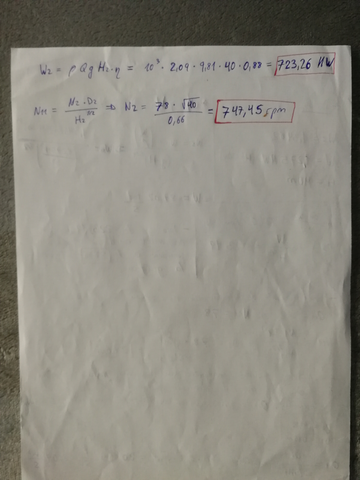 W₂ = ρ Q g H₂·η = 10³ · 2,09 · 9,81 · 40 · 0,88 = 723,26 KW
N₁₁ = N₂·D₂ / H₂^1/2 → N₂ = 78 · √40 / 0,66 = 747,45 rpm